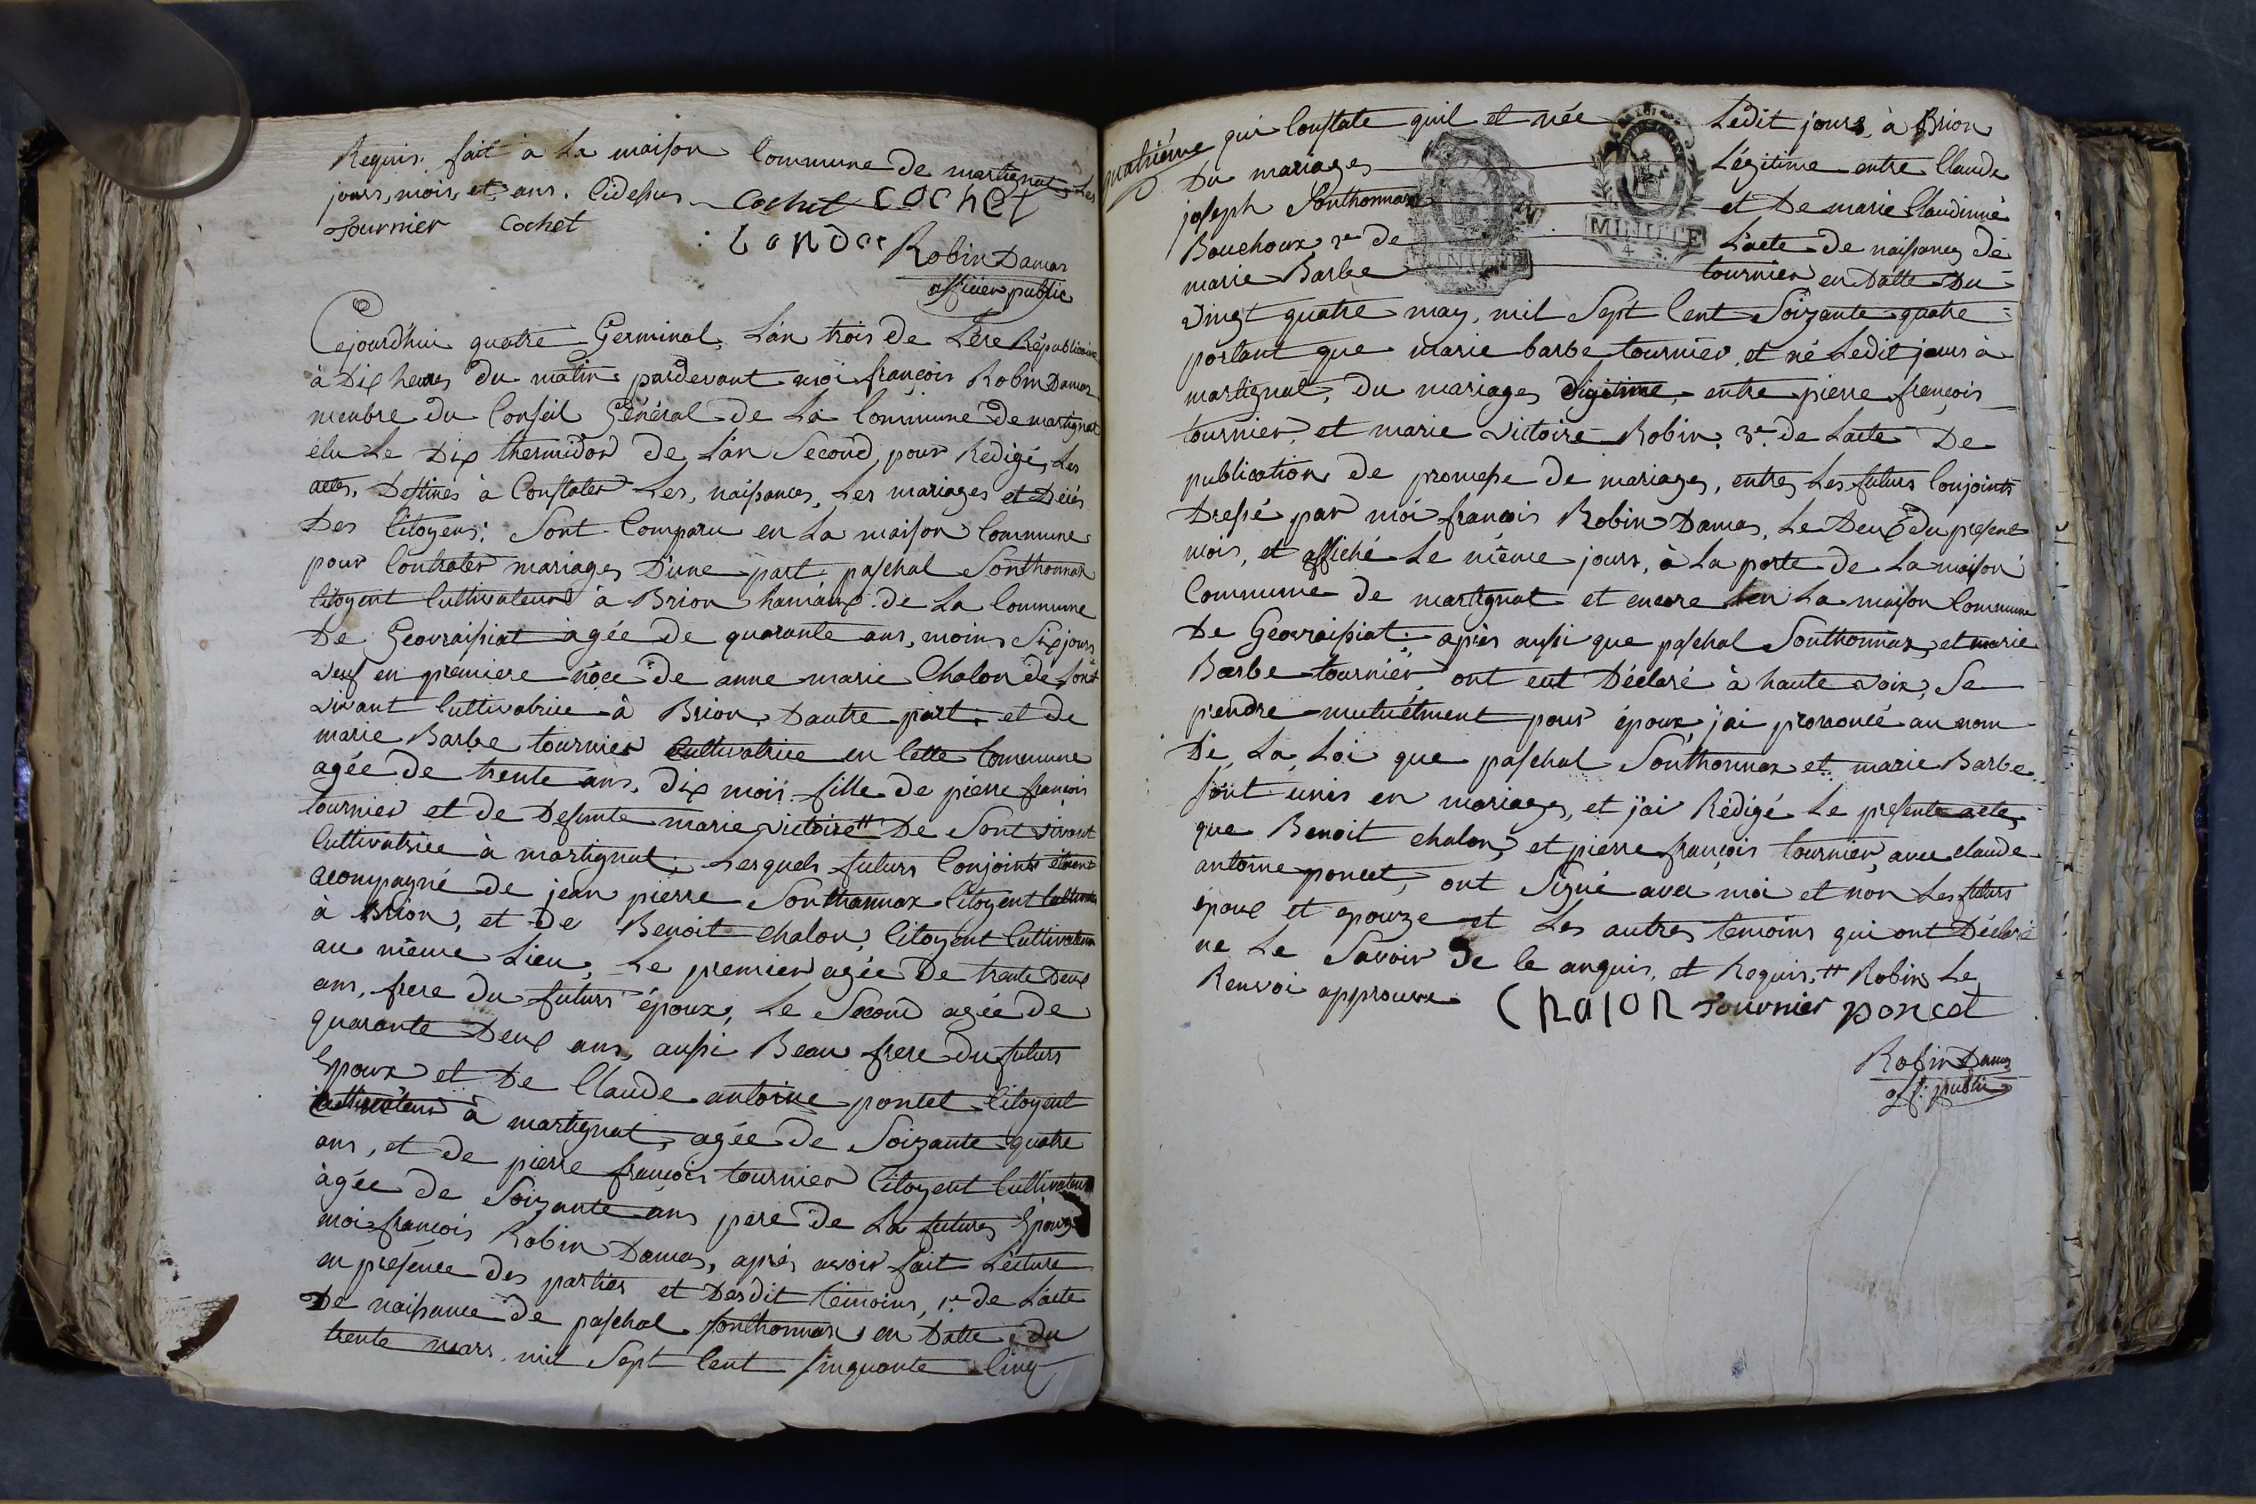 Requis. fait à La maison Commune de martignat Les
jours, mois, et ans. Cidessus Cochet COCHET
Tournier Cochet
Landoz Robin Damas
officier public
Cejourd'hui quatre Germinal, L'an trois de L'ère Républicaine
à Dix heures du matin pardevant moi françois Robin Damas
menbre du Conseil Général de La Commune De martignat
élu Le Dix thermidor de L'an Second, pour Rédigé, Les
actes, Destinés à Constater Les, naissances, Les mariages et Décès
Des Citoyens: Sont Comparu en La maison Commune
pour Contrater mariages D'une part paschal Sonthonnax
Citoyent Cultivateur à Brion hamaux de La Commune
De Geovraissiat agée de quarante ans, moins Six jours
veuf en premiere nôce de anne marie Chalon de Sont
vivant Cultivatrice à Brion, Dautre part, et de
marie Barbe tournier Cultivatrice en Cette Commune
agée De trente ans, Dix mois fille de pierre françois
tournier et de Defunte marie victoire # De Sont vivant
Cultivatrice à martignat; Lesquels futurs Conjoints étoient
acompagné de jean pierre Sonthonnax Citoyent Cultivateur
à Brion, et De Benoit chalon, Citoyent Cultivateur
au même Lieu, Le premier agée De trente Deux
ans, frere du futurs époux, Le Second agée De
quarante Deux ans, aussi Beau frere Du futurs
Epoux et De Claude antoine poncet Citoyent
Cultivateur à martignat, agée De Soizante quatre
ans, et de pierre françois tournier Citoyent Cultivateur
agée de Soizante ans pere De La futures Epouze
moi françois Robin Damas, après avoir fait Lecture
en présence des parties et Desdit temoins, 1er de L'acte
De naissance de paschal Sonthonnax en Datte, Du
trente mars, mil Sept Cent Cinquante Cinq
quatriéme qui Constate quil et née Ledit jours, à Brion
Du mariages Légitime entre Claude
joseph Sonthonnax et De marie Claudinne
Bouchoux, 2e de L'acte de naissances de
marie Barbe tournier en Datte Du
MINUTE
vingt quatre may, mil Sept Cent Soizante quatre
portant que marie barbe tournier, et né Ledit jours à
martignat, Du mariages Légitime, entre pierre françois
tournier, et marie victoire Robin, 3e de Lacte De
publication de promesse de mariages, entre Les futurs Conjoints
Dressé par moi françois Robin Damas, Le Deux du present
mois, et affiché Le même jours, à La porte de La maison
Commune de martignat et encore en La maison Commune
De Geovraissiat: après aussi que paschal Sonthonnax et marie
Barbe tournier ont eut Déclaré à haute voix, Se
prendre mutuélment pour époux, j'ai prononcé au nom
De, La, Loi que paschal Sonthonnax et marie Barbe
Sont unis en mariages, et j'ai Rédigé Le presente acte,
que Benoit chalon, et pierre françois tournier avec claude
antoine poncet, ont Signé avec moi et non Les futurs
époux et epouze et Les autres temoins qui ont Déclaré
ne Le Savoir De Ce anquis, et Requis, # Robin Le
Renvoi approuve
ChalON Tournier poncet
Robin Damas
off. public